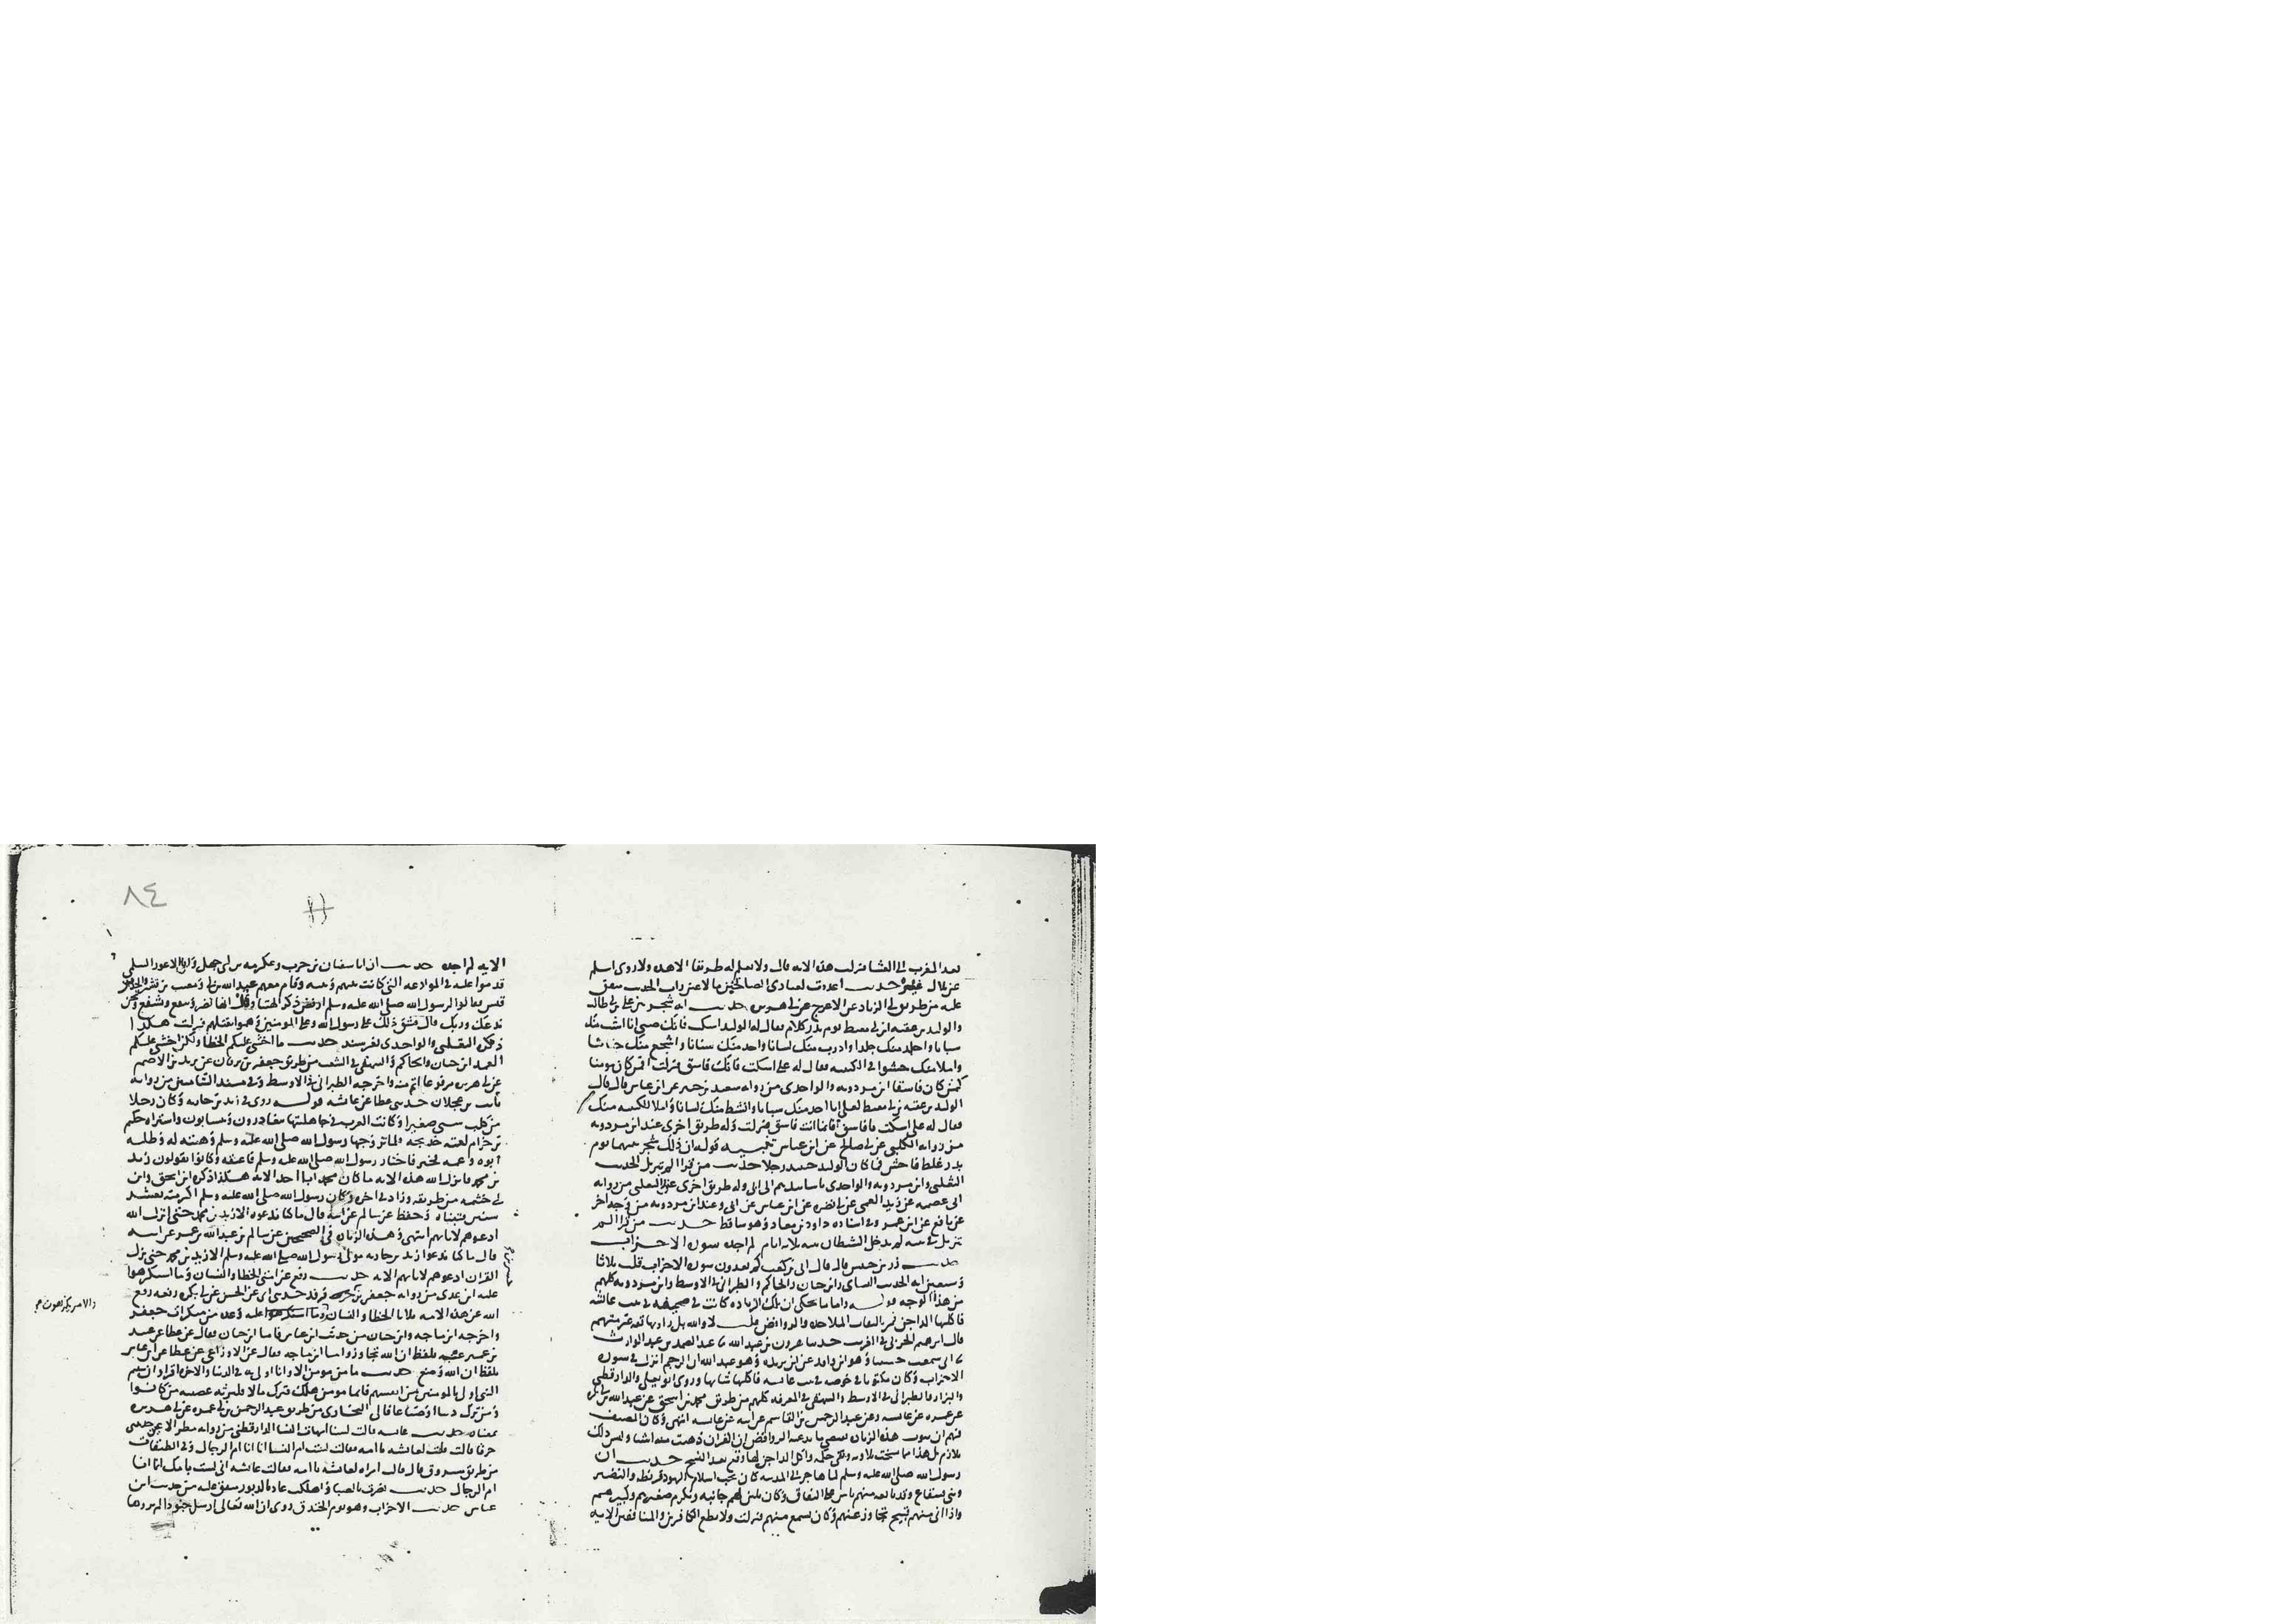 بعد المغرب الى العشا فنزلت هذه الايه قال ولا نعلم له طريقا الا هذه ولا روى اسلم
عن بلال غيره حديث اعددت لعبادى الصالحين ما لا عين رات الحديث متفق
عليه من طريق ابى الزناد عن الاعرج عن ابى هريره حديث انه شجر بين على بن ابى طالب
والوليد بن عقبه ابن ابى معيط يوم بدر كلام فقال له الوليد اسكت فانك صبى انا اشب منك
شبابا واجلد منك جلدا واذرب منك لسانا واحد منك سنانا واشجع منك جنانا
واملا منك حشوا فى الكتيبه فقال له على اسكت فانك فاسق فنزلت افمن كان مومنا
كمن كان فاسقا ابن مردويه والواحدى من روايه سعيد بن جبير عن ابن عباس قال قال
الوليد بن عقبه بن ابى معيط لعلى انا احد منك سنانا وابسط منك لسانا واملا للكتيبه منك
فقال له على اسكت يا فاسق فانما انت فاسق فنزلت وله طريق اخرى عند ابن مردويه
من روايه الكلبى عن ابى صالح عن ابن عباس تنبيه قوله ان ذلك شجر بينهما يوم
بدر غلط فاحش فما كان الوليد حينيد رجلا حديث من قرا الم تنزيل الحديث
الثعلبى وابن مردويه والواحدى باسانيدهم الى ابى وله طريق اخرى عند الثعلبى من روايه
ابى عصمه عن زيد العمى عن ابى نضره عن ابن عباس عن ابى وعند ابن مردويه من وجه اخر
عن نافع عن ابن عمر وفى اسناده داود بن معاد وهو ساقط حديث من قرا الم
تنزيل فى بيته لم يدخل الشيطان بيته ثلاثه ايام لم اجده سوره الاحزاب
حديث زر بن حبيش قال قال ابى بن كعب كم تعدون سوره الاحزاب قلت ثلاثا
وسبعين ايه الحديث النساى وابن حبان والحاكم والطبرانى فى الاوسط وابن مردويه كلهم
من هذا الوجه قوله واما ما يحكى ان تلك الزياده كانت فى صحيفه فى بيت عائشه
فاكلتها الداجن فمن تاليفات الملاحده والروافض قلت لا والله بل راويها ثقه غير متهم
قال ابرهيم الحربى فى الغريب حدثنا هرون بن عبد الله ثنا عبد الصمد بن عبد الوارث
ثنا ابى سمعت حسينا وهو ابن واقد عن ابن بريده وهو عبد الله ان الرجم انزل فى سوره
الاحزاب وكان مكتوبا فى خوصه فى بيت عايشه فاكلتها شاتها وروى ابو يعلى والدارقطنى
والبزار والطبرانى فى الاوسط والبيهقى فى المعرفه كلهم من طريق محمد بن اسحق عن عبد الله بن ابى بكر
عن عمره عن عايشه وعن عبد الرحمن بن القاسم عن ابيه عن عايشه انتهى وكان المصنف
فهم ان ثبوت هذه الزياده يقتضى ما يدعيه الروافض ان القران ذهبت منه اشيا وليس ذلك
بلازم بل هذا مما نسخت تلاوته وبقى حكمه واكل الداجن لها وقع بعد النسخ حديث ان
رسول الله صلى الله عليه وسلم لما هاجر الى المدينه كان يحب اسلام اليهود قريظه والنضير
وبنى قينقاع وقد بايعه منهم ناس على النفاق وكان يلين لهم جانبه ويكرم صغيرهم وكبيرهم
واذا اتى منهم قبيح تجاوز عنهم وكان يسمع منهم فنزلت ولا تطع الكافرين والمنافقين الايه
٨٤
الايه لم اجده حديث ان ابا سفيان بن حرب وعكرمه بن ابى جهل وابا الاعور السلمى
قدموا عليه فى الموادعه التى كانت بينهم وبينه وقام معهم عبد الله بن ابى ومعتب بن قشير والجد بن
قيس فقالوا لرسول الله صلى الله عليه وسلم ارفض ذكر الهتنا وقل انها تضر وتنفع وتشفع ونحن
ندعك وربك قال فشق ذلك على رسول الله وعلى المومنين وهموا بقتلهم فنزلت هكذا
ذكره الثعلبى والواحدى بغير سند حديث ما اخشى عليكم الخطا ولكن اخشى عليكم
العمد ابن حبان والحاكم والبيهقى فى الشعب من طريق جعفر بن برقان عن يزيد بن الاصم
عن ابى هريره مرفوعا اتم منه واخرجه الطبرانى فى الاوسط وفى مسند الشاميين من روايه
ثابت بن عجلان حدثنى عطا عن عائشه قوله روى فى زيد بن حارثه وكان رجلا
من كلب سبى صغيرا وكانت العرب فى جاهليتها يتغادرون ويتسابون واشتراه حكيم
بن حزام لعمته خديجه فلما تزوجها رسول الله صلى الله عليه وسلم وهبته له وطلبه
ابوه وعمه فخير فاختار رسول الله صلى الله عليه وسلم فاعتقه وكانوا يقولون زيد
بن محمد فانزل الله هذه الايه ما كان محمد ابا احد الايه هكذا ذكره ابن اسحق وابن
ابى خيثمه من طريقه وزاد فى اخره وكان رسول الله صلى الله عليه وسلم اكبر منه بعشر
سنين فتبناه وحفظ عن سالم عن ابيه قال ما كنا ندعوه الا زيد بن محمد حتى انزل الله
ادعوهم لابايهم انتهى وهذه الزياده فى الصحيحين عن سالم بن عبد الله بن عمر عن ابيه
قال ما كنا ندعوا زيد بن حارثه مولى رسول الله صلى الله عليه وسلم الا زيد بن محمد حتى نزل
القران ادعوهم لابايهم الايه حديث رفع عن امتى الخطا والنسيان وما استكرهوا
عليه ابن عدى من روايه جعفر بن جسر بن فرقد حدثنى ابى عن الحسن عن ابى بكره رفعه رفع
الله عن هذه الامه ثلاثا الخطا والنسيان والامر يكرهون عليه وعده من منكرات جعفر
واخرجه ابن ماجه وابن حبان من حديث ابن عباس فاما ابن حبان فقال عن عطا عن عبيد
بن عمير عنه بلفظ ان الله تجاوز واما ابن ماجه فقال عن الاوزاعى عن عطا عن ابن عباس
بلفظ ان الله وضع حديث ما من مومن الا وانا اولى به فى الدنيا والاخره اقراوا ان شيتم
النبى اولى بالمومنين من انفسهم فايما مومن هلك وترك مالا فليرثه عصبته من كانوا
ومن ترك دينا او ضياعا فالى البخارى من طريق عبد الرحمن بن ابى عمره عن ابى هريره
بمعناه حديث عايشه قالت لسنا امهات النسا الدارقطنى من روايه مطر الاعور حدثتنى
خرقا قالت قلت لعائشه يا امه فقالت لست ام النسا انما انا ام الرجال وفى الطبقات
من طريق مسروق قال قالت امراه لعائشه يا امه فقالت عائشه انى لست بامك انما انا
ام الرجال حديث نصرت بالصبا واهلكت عاد بالدبور متفق عليه من حديث ابن
عباس حديث الاحزاب وهو يوم الخندق روى ان الله تعالى ارسل جنودا لم تروها
والامر يكرهون صح